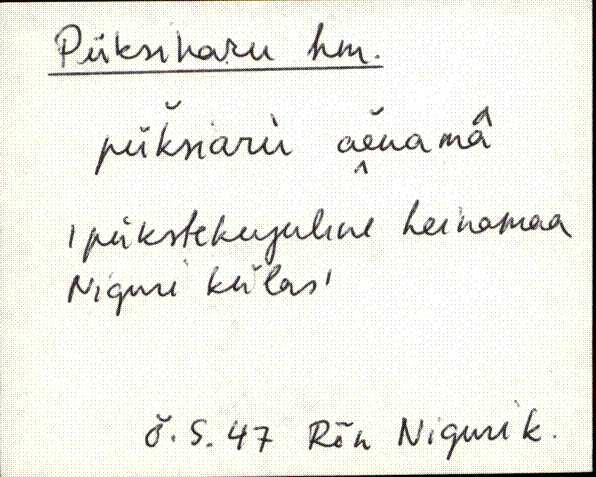 Püksiharu hm.
pükšiarù aĕnamâ
'püksтekujuline heinamaa
Niguri külas'
õ. S. 47 Rõn Niguri k.